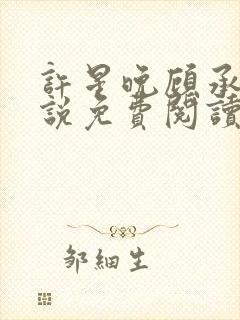 許星晚顧承
說免費閱讀
鄒細生